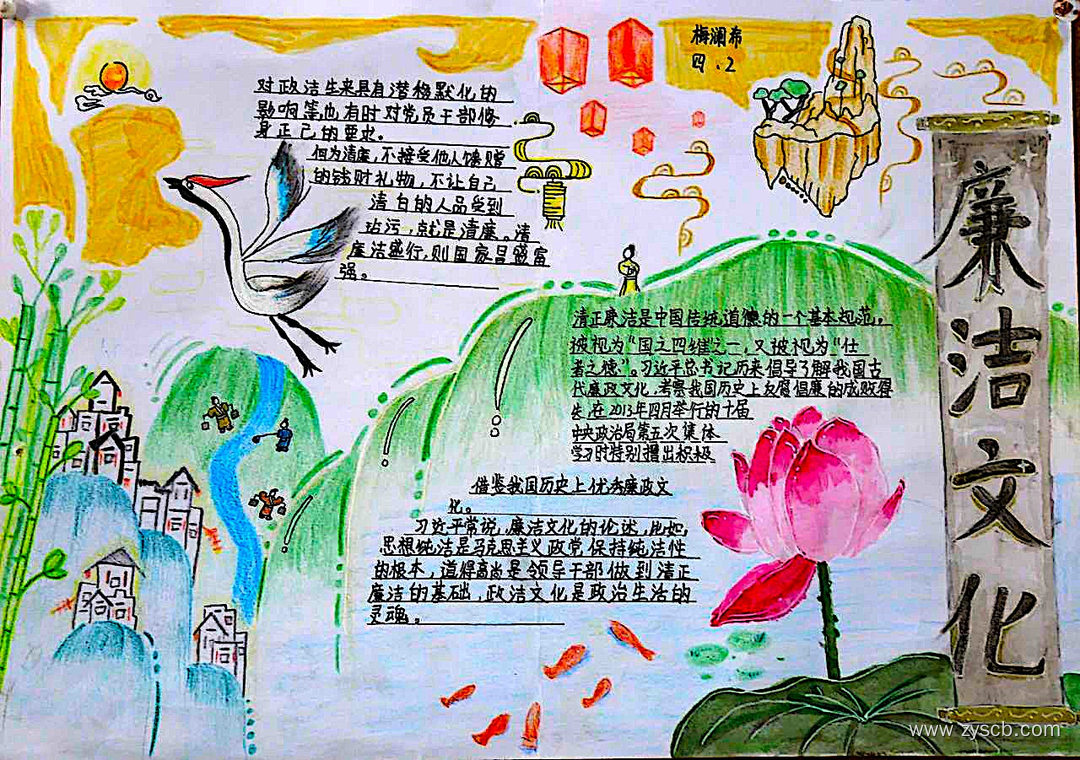 梅澜希
四.2
对政洁生来具有潜移默化的
影响等也有时对党员干部修
身正己的要求。
何为清廉,不接受他人馈赠
的钱财礼物,不让自己
清白的人品受到
玷污,就是清廉。清
廉洁盛行,则国家昌盛富
强。
清正廉洁是中国传统道德的一个基本规范,
被视为"国之四维之一,又被视为"仕
者之德"。习近平总书记历来倡导了解我国古
代廉政文化,考察我国历史上反腐倡廉的成败得
失,在2013年四月举行的十届
中央政治局第五次集体
学习时特别提出积极
借鉴我国历史上优秀廉政文
化。
习近平常说,廉洁文化的论述,比如,
思想纯洁是马克思主义政党保持纯洁性
的根本,道得高尚是领导干部做到清正
廉洁的基础,政洁文化是政治生活的
灵魂。
廉洁文化
www.zyscb.com